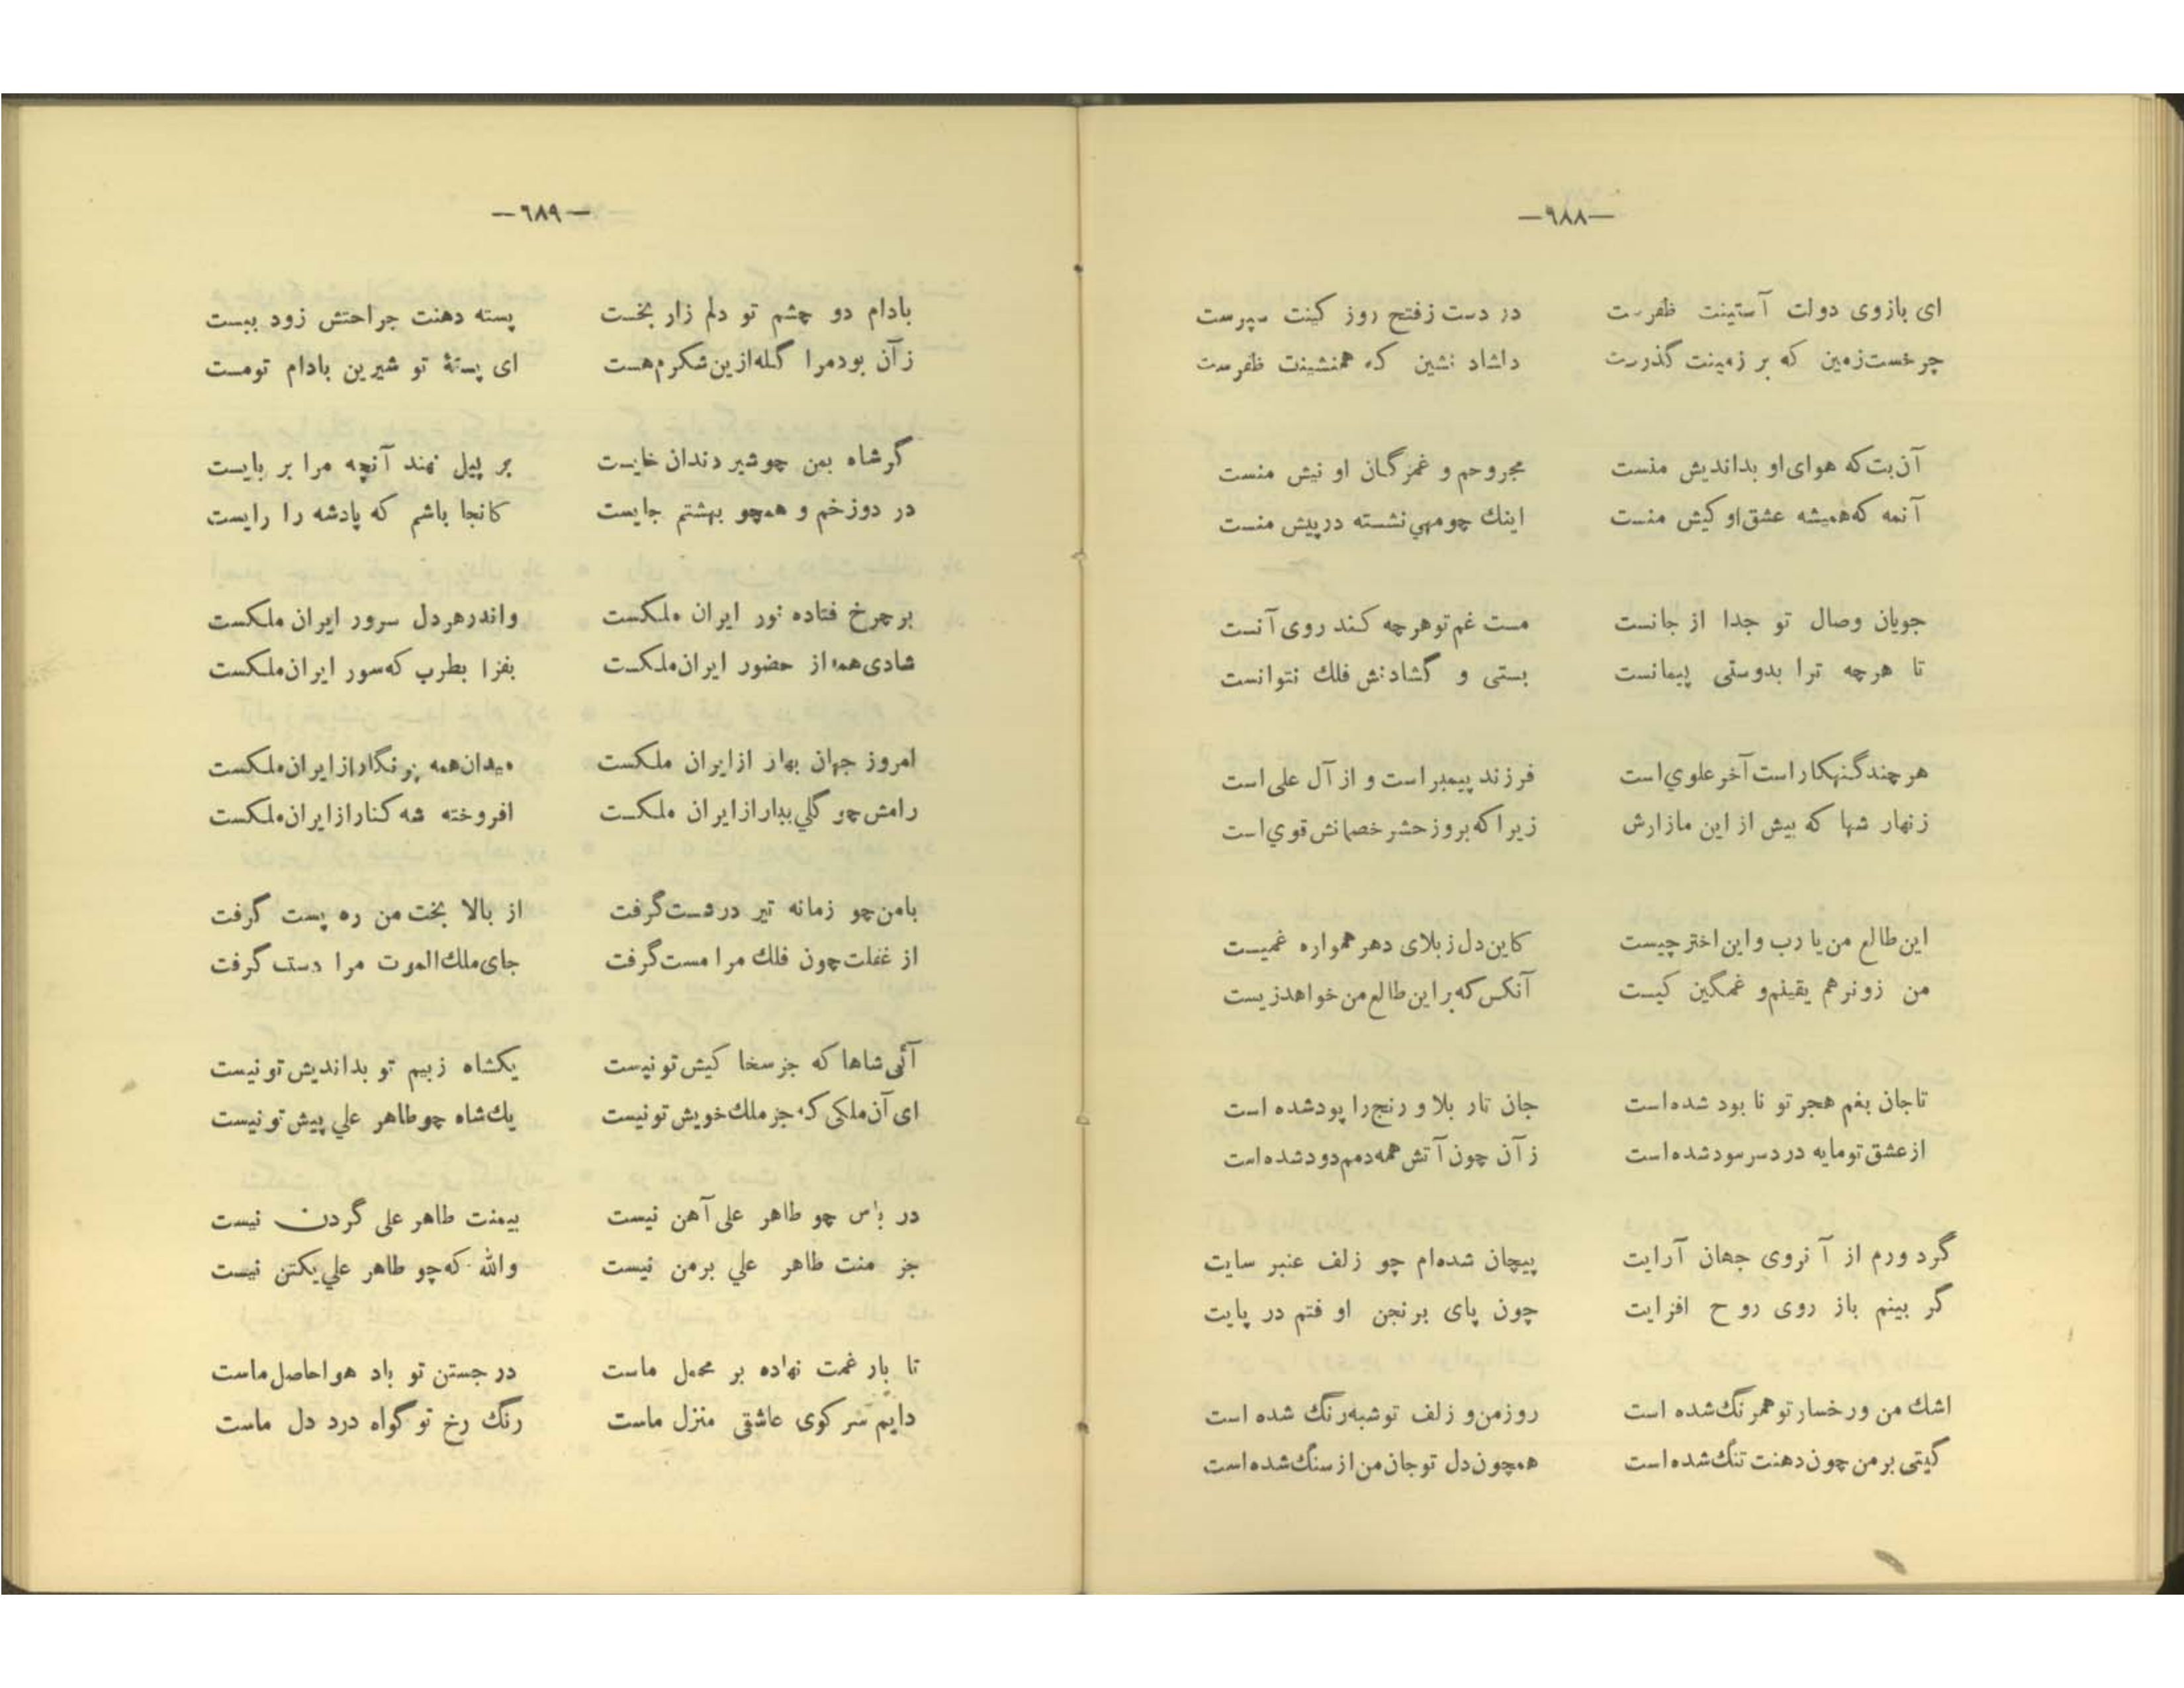 —٦٨٨—
ای بازوی دولت آستینت ظفرست    در دست زفتح روز کینت سپرست
چرخست‌زمین که بر زمینت گذرست    داشاد نشین که همنشینت ظفرست
آن‌بت‌که هوای‌او بداندیش منست    مجروحم و غمزگان او نیش منست
آنمه که‌همیشه عشق‌او کیش منست    اینك چومهي‌نشسته درپیش منست
جویان وصال تو جدا از جانست    مست غم‌توهرچه کند روی‌آنست
تا هرچه ترا بدوستی پیمانست    بستی و گشادنش فلك نتوانست
هرچندگنهکاراست‌آخرعلوي‌است    فرزند پیمبراست و از آل علی‌است
زنهار شها که بیش از این مازارش    زیراکه‌بروزحشرخصمانش‌قوي‌است
این‌طالع من‌یا رب واین‌اختر چیست    کاین‌دل زبلای دهر همواره غمیست
من زونرهم یقینم‌و غمگین کیست    آنکس‌که‌براین‌طالع‌من‌خواهدزیست
تاجان بغم هجر تو نا بود شده‌است    جان تار بلا و رنج‌را پودشده است
ازعشق‌تومایه دردسرسودشده‌است    زآن چون‌آتش‌همه‌دمم‌دودشده‌است
گرد ورم از آنروی جهان آرایت    پیچان شده‌ام چو زلف عنبر سایت
گر بینم باز روی روح افزایت    چون پای برنجن او فتم در پایت
اشك من ورخسارتوهمرنگ‌شده است    روزمن‌و زلف توشبه‌رنگ شده است
گیتی برمن‌چون‌دهنت تنگ‌شده‌است    همچون‌دل توجان‌من‌ازسنگ‌شده‌است
—٦٨٩—
بادام دو چشم تو دلم زار بخست    پسته دهنت جراحتش زود ببست
زآن بودمرا گله‌ازین‌شکرم‌هست    ای پستهٔ تو شیرین بادام تومست
گرشاه بمن چوشیر دندان خایست    بر پیل نهند آنچه مرا بر بایست
در دوزخم و همچو بهشتم جایست    کانجا باشم که پادشه را رایست
برچرخ فتاده نور ایران ملکست    واندرهردل سرور ایران ملکست
شادی‌همه از حضور ایران‌ملکست    بفزا بطرب که‌سور ایران‌ملکست
امروز جهان بهار ازایران ملکست    میدان‌همه پرنگارازایران‌ملکست
رامش چو گلي‌ببارازایران ملکست    افروخته شه کنارازایران‌ملکست
بامن‌چو زمانه تیر درشست‌گرفت    از بالا بخت‌من ره پست گرفت
از غفلت‌چون فلك مرا مست‌گرفت    جای‌ملك‌الموت مرا دست گرفت
آنی‌شاها که جز سخا کیش تو نیست    یکشاه زبیم تو بداندیش‌تو نیست
ای آن‌ملکی که جز ملك‌خویش‌تونیست    یك‌شاه چوطاهر علي پیش تو نیست
در باس چو طاهر علی آهن نیست    بیمنت طاهر علی گردن نیست
جز منت طاهر علي برمن نیست    والله که‌چو طاهر علي‌یکتن نیست
تا بار غمت نهاده بر محمل ماست    در جستن تو باد هواحاصل‌ماست
دایم سر کوی عاشقی منزل ماست    رنگ رخ تو گواه درد دل ماست